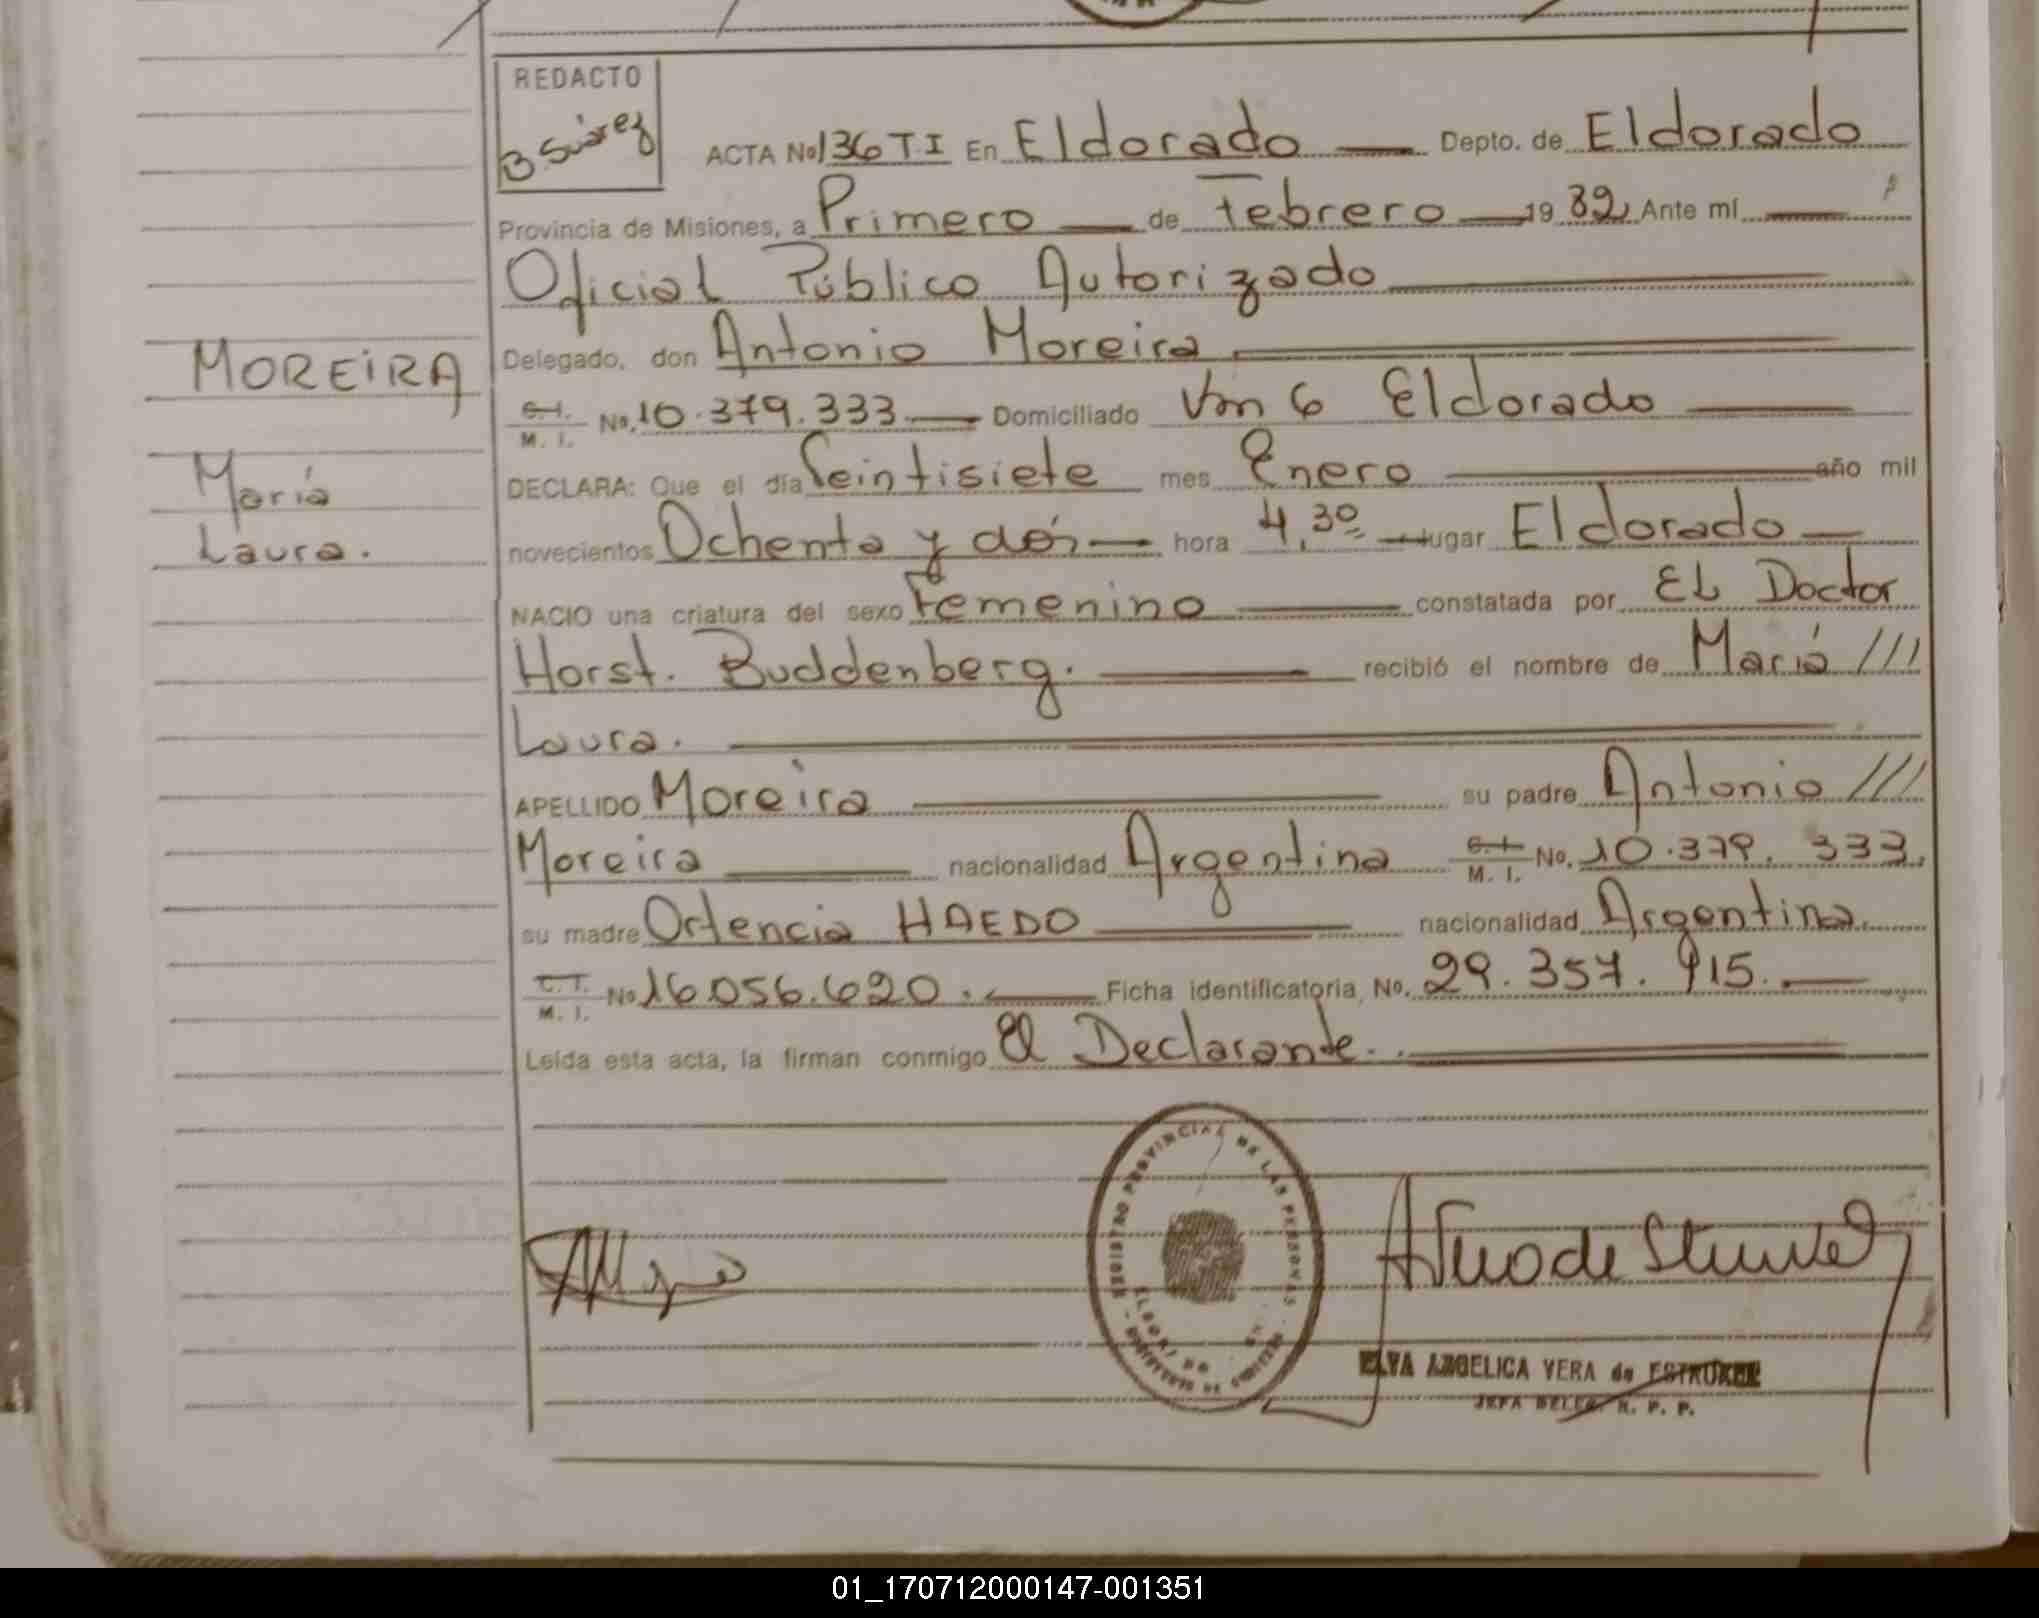 REDACTO
B. Suárez
ACTA No 136 T I En Eldorado Depto. de Eldorado
Provincia de Misiones, a Primero de Febrero 19 82 Ante mí
Oficial Público Autorizado
Delegado, don Antonio Moreira
MOREIRA
C.I. M. I. No. 10.379.333 Domiciliado Km 6 Eldorado
DECLARA: Que el día Veintisiete mes Enero año mil
María
Laura.
novecientos Ochenta y dós hora 4,30 lugar Eldorado
NACIO una criatura del sexo Femenino constatada por EL Doctor
Horst. Buddenberg. recibió el nombre de María ///
Laura.
APELLIDO Moreira su padre Antonio ///
Moreira nacionalidad Argentina C.I. M. I. No. 10.379.333.
su madre Ortencia HAEDO nacionalidad Argentina.
C.I. M. I. No 16.056.620. Ficha identificatoria, No. 29.357.915.
Leída esta acta, la firman conmigo El Declarante.
REGISTRO PROVINCIAL DE LAS PERSONAS
ELDORADO
ELVA ANGELICA VERA de ESTRUKEL
JEFA DELEG. R. P. P.
01_170712000147-001351